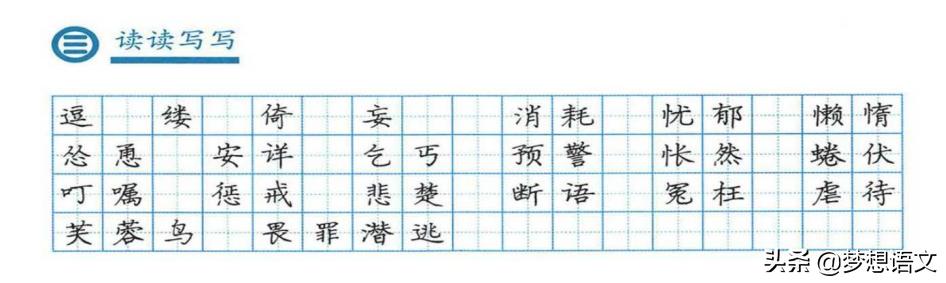 三 读读写写
逗 缕 倚 妄 消耗 忧郁 懒惰
怂恿 安详 乞丐 预警 怅然 蜷伏
叮嘱 惩戒 悲楚 断语 冤枉 虐待
芙蓉鸟 畏罪潜逃
头条 @梦想语文